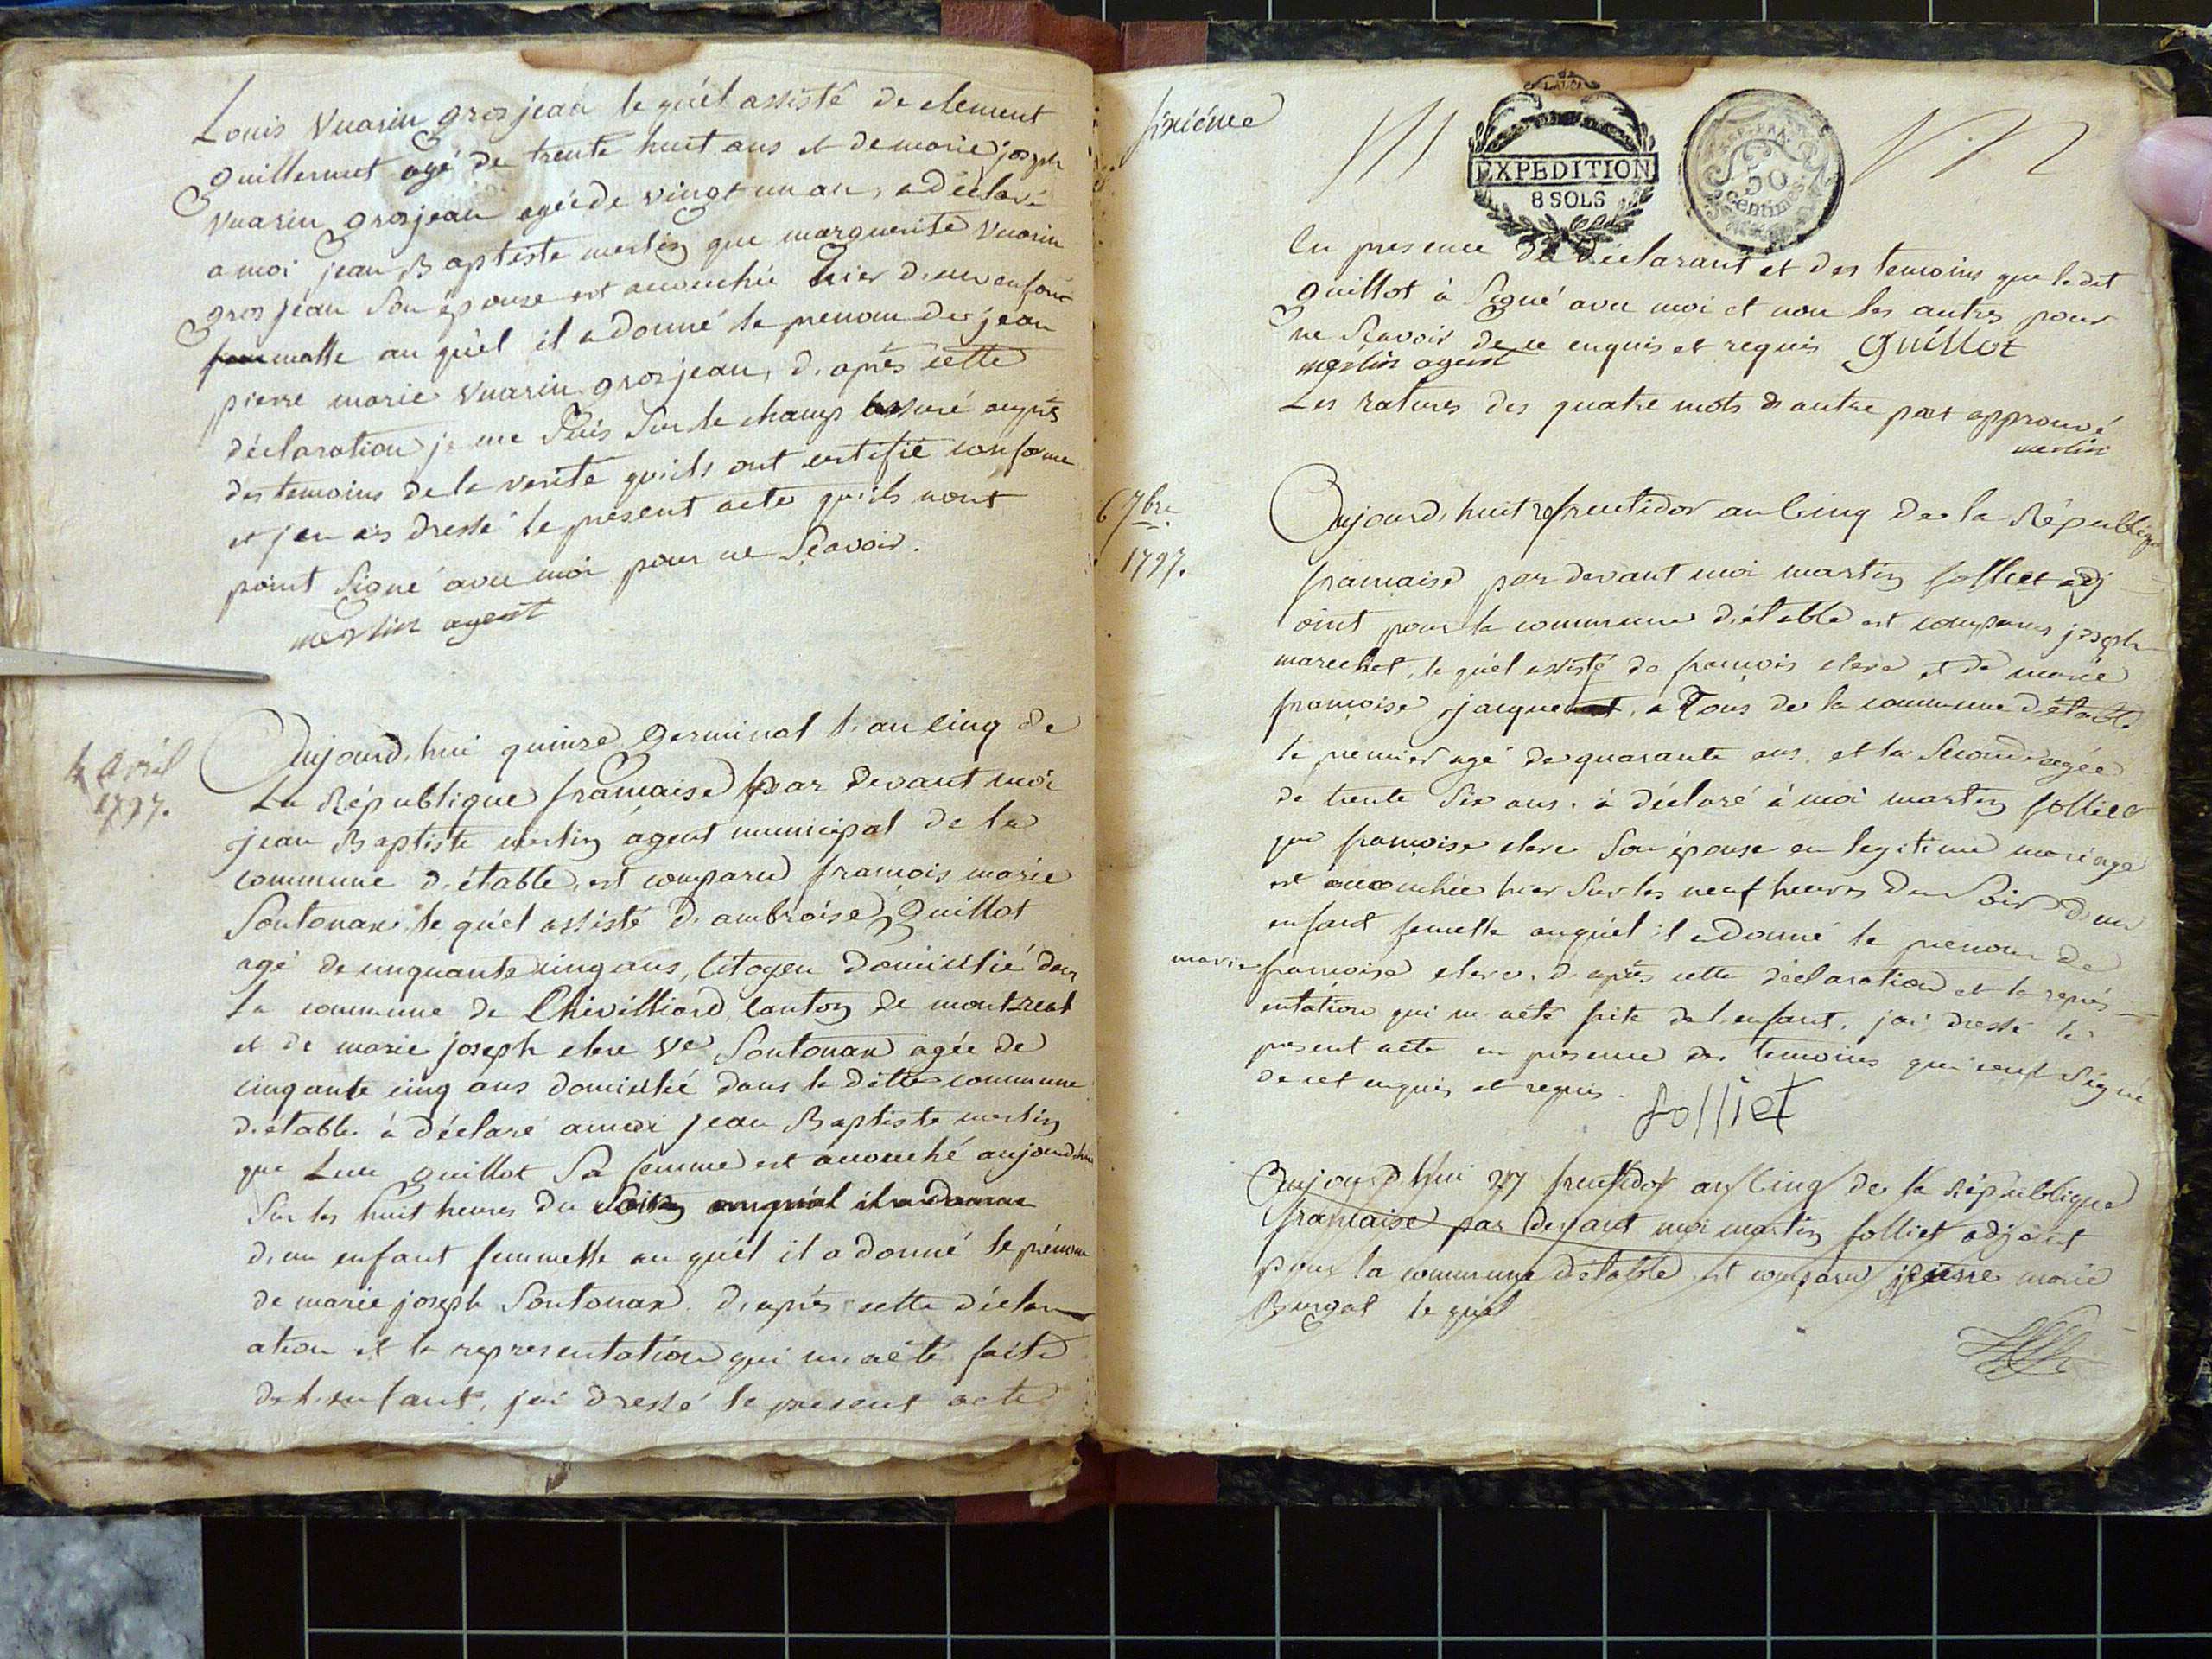 Louis Vuarin grosjean le quél assisté de clement
guillermet agé de trente huit ans et de marie joseph
Vuarin grosjean agée de vingt un an, a déclaré
a moi jean Baptiste merlin que marguerite Vuarin
gros jean son épouse est accouchée hier d'un enfant
malle au quél il a donné le prenom de jean
pierre marie Vuarin grosjean, d'après cette
déclaration je me suis sur le champ assuré auprès
des temoins de la verité qu'ils ont certifié conforme
et j'en ais dressé le présent acte qu'ils n'ont
point signé avec moi pour ne sçavoir.
merlin agent
4 avril
1797.
Aujourd'hui quinze germinal l'an cinq de
La République française par devant moi
jean Baptiste merlin agent municipal de la
commune d'étable, est comparu francois marie
Soutonax le quél assisté d'ambroise Guillot
agé de cinquante cinq ans, Citoyen domicilié dans
la commune de Chevilliard canton de montreal
et de marie joseph clere Ve Soutonax agée de
cinqante cinq ans domicilié dans la ditte commune
d'etable à déclaré a moi jean Baptiste merlin
que Luce guillot sa femme est accouché aujourd'hui
sur les huit heures du auquél il a donné
d'un enfant femmelle au quél il a donné le prénom
de marie joseph Soutonax. d'après cette déclar
ation et la representation qui m'a été faite
de l'enfant, j'ai dressé le present acte
sixiéme
LA LOI
EXPEDITION
8 SOLS
REP. FRA.
50
Centimes
En presence du déclarant et des temoins que le dit
guillot à signé avec moi et non les autres pour
ne sçavoir de ce enquis et requis Guillot
merlin agent
Les ratures des quatre mots d'autre part approuvé
merlin
6 7bre
1797.
Aujourd'hui fructidor an Cinq de la République
francaise par devant moi martin folliet adj
oint pour la commune d'étable est comparus joseph
marechet, le quél assisté de francois clere et de marie
françoise jacque, Tous de la commune d'étable
le premier agé de quarante ans, et la seconde agée
de trente six ans. à déclaré à moi martin folliet
que françoise clere son épouse en legitime mariage
est accouchée hier sur les neuf heures du soir d'un
enfant femelle auquél il a donné le prenom de
marie françoise clere. d'après cette déclaration et la représ
entation qui m'a été faite de l'enfant, j'ai dressé le
present acte en presence des temoins qui signé
de cet enquis et requis. folliet
Aujourd'hui 27 fructidor an Cinq de la République
française par devant moi martin folliet adjoint
pour la commune d'étable est comparu pierre marie
Burgat le quél